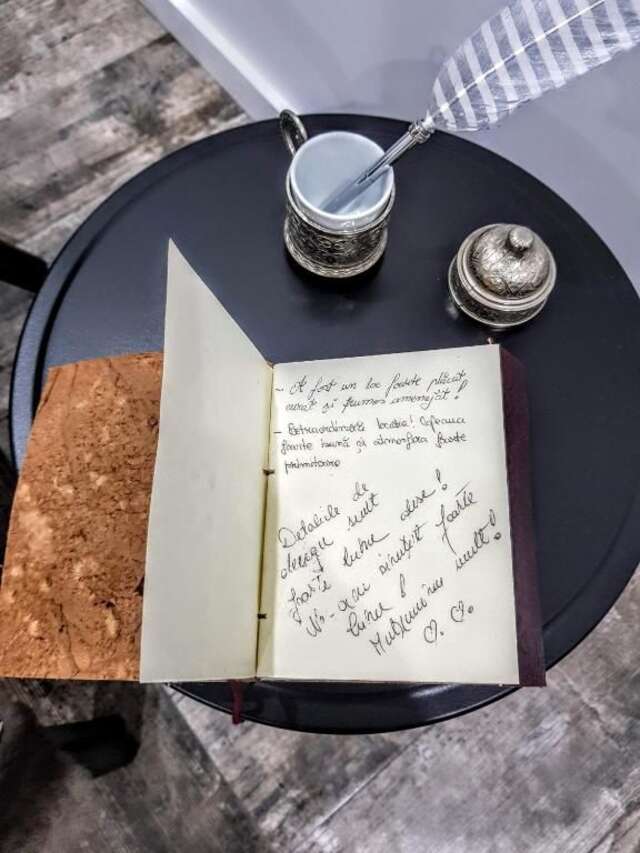 - A fost un loc foarte plăcut
curat și frumos amenajat!
- Extraordinară locația! Cafeaua
foarte bună și atmosfera foarte
primitoare
Detaliile de
design sunt
foarte bune alese!
Ne-am simțit foarte
bine!
Mulțumim mult!